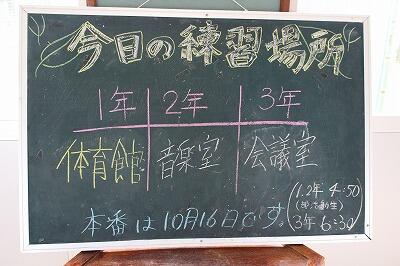 今日の練習場所
1年 2年 3年
体育館 音楽室 会議室
本番は10月16日です。
(1.2年 4:50
(部活動生)
3年 6:30)